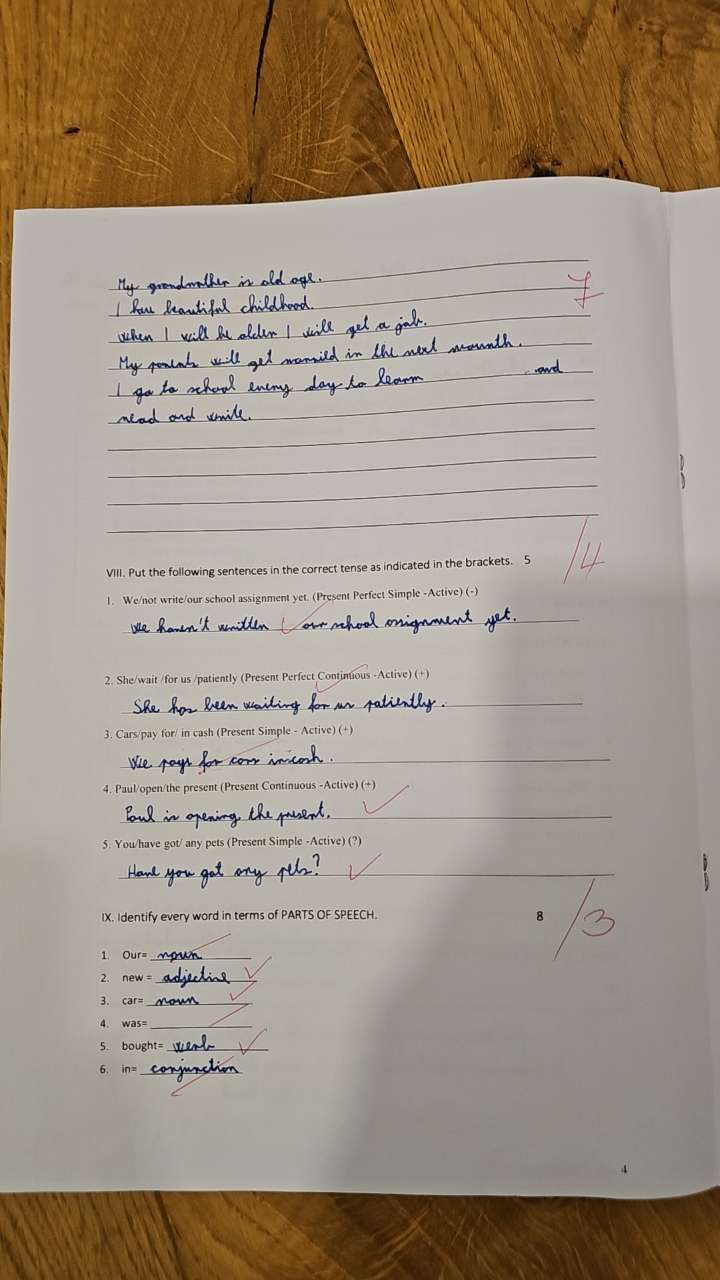 My grandmother is old age.
I have beautiful childhood.
7
When I will be older I will get a job.
My parents will get married in the next mounth.
I go to school every day to learn and
read and write.
VIII. Put the following sentences in the correct tense as indicated in the brackets. 5 /4
1. We/not write/our school assignment yet. (Present Perfect Simple -Active) (-)
We haven't written our school assignment yet.
2. She/wait /for us /patiently (Present Perfect Continuous -Active) (+)
She has been waiting for us patiently.
3. Cars/pay for/ in cash (Present Simple - Active) (+)
We pays for cars in cash.
4. Paul/open/the present (Present Continuous -Active) (+)
Paul is opening the present.
5. You/have got/ any pets (Present Simple -Active) (?)
Have you got any pets?
IX. Identify every word in terms of PARTS OF SPEECH. 8 /3
1. Our= noun
2. new = adjective
3. car= noun
4. was=
5. bought= verb
6. in= conjunction
4